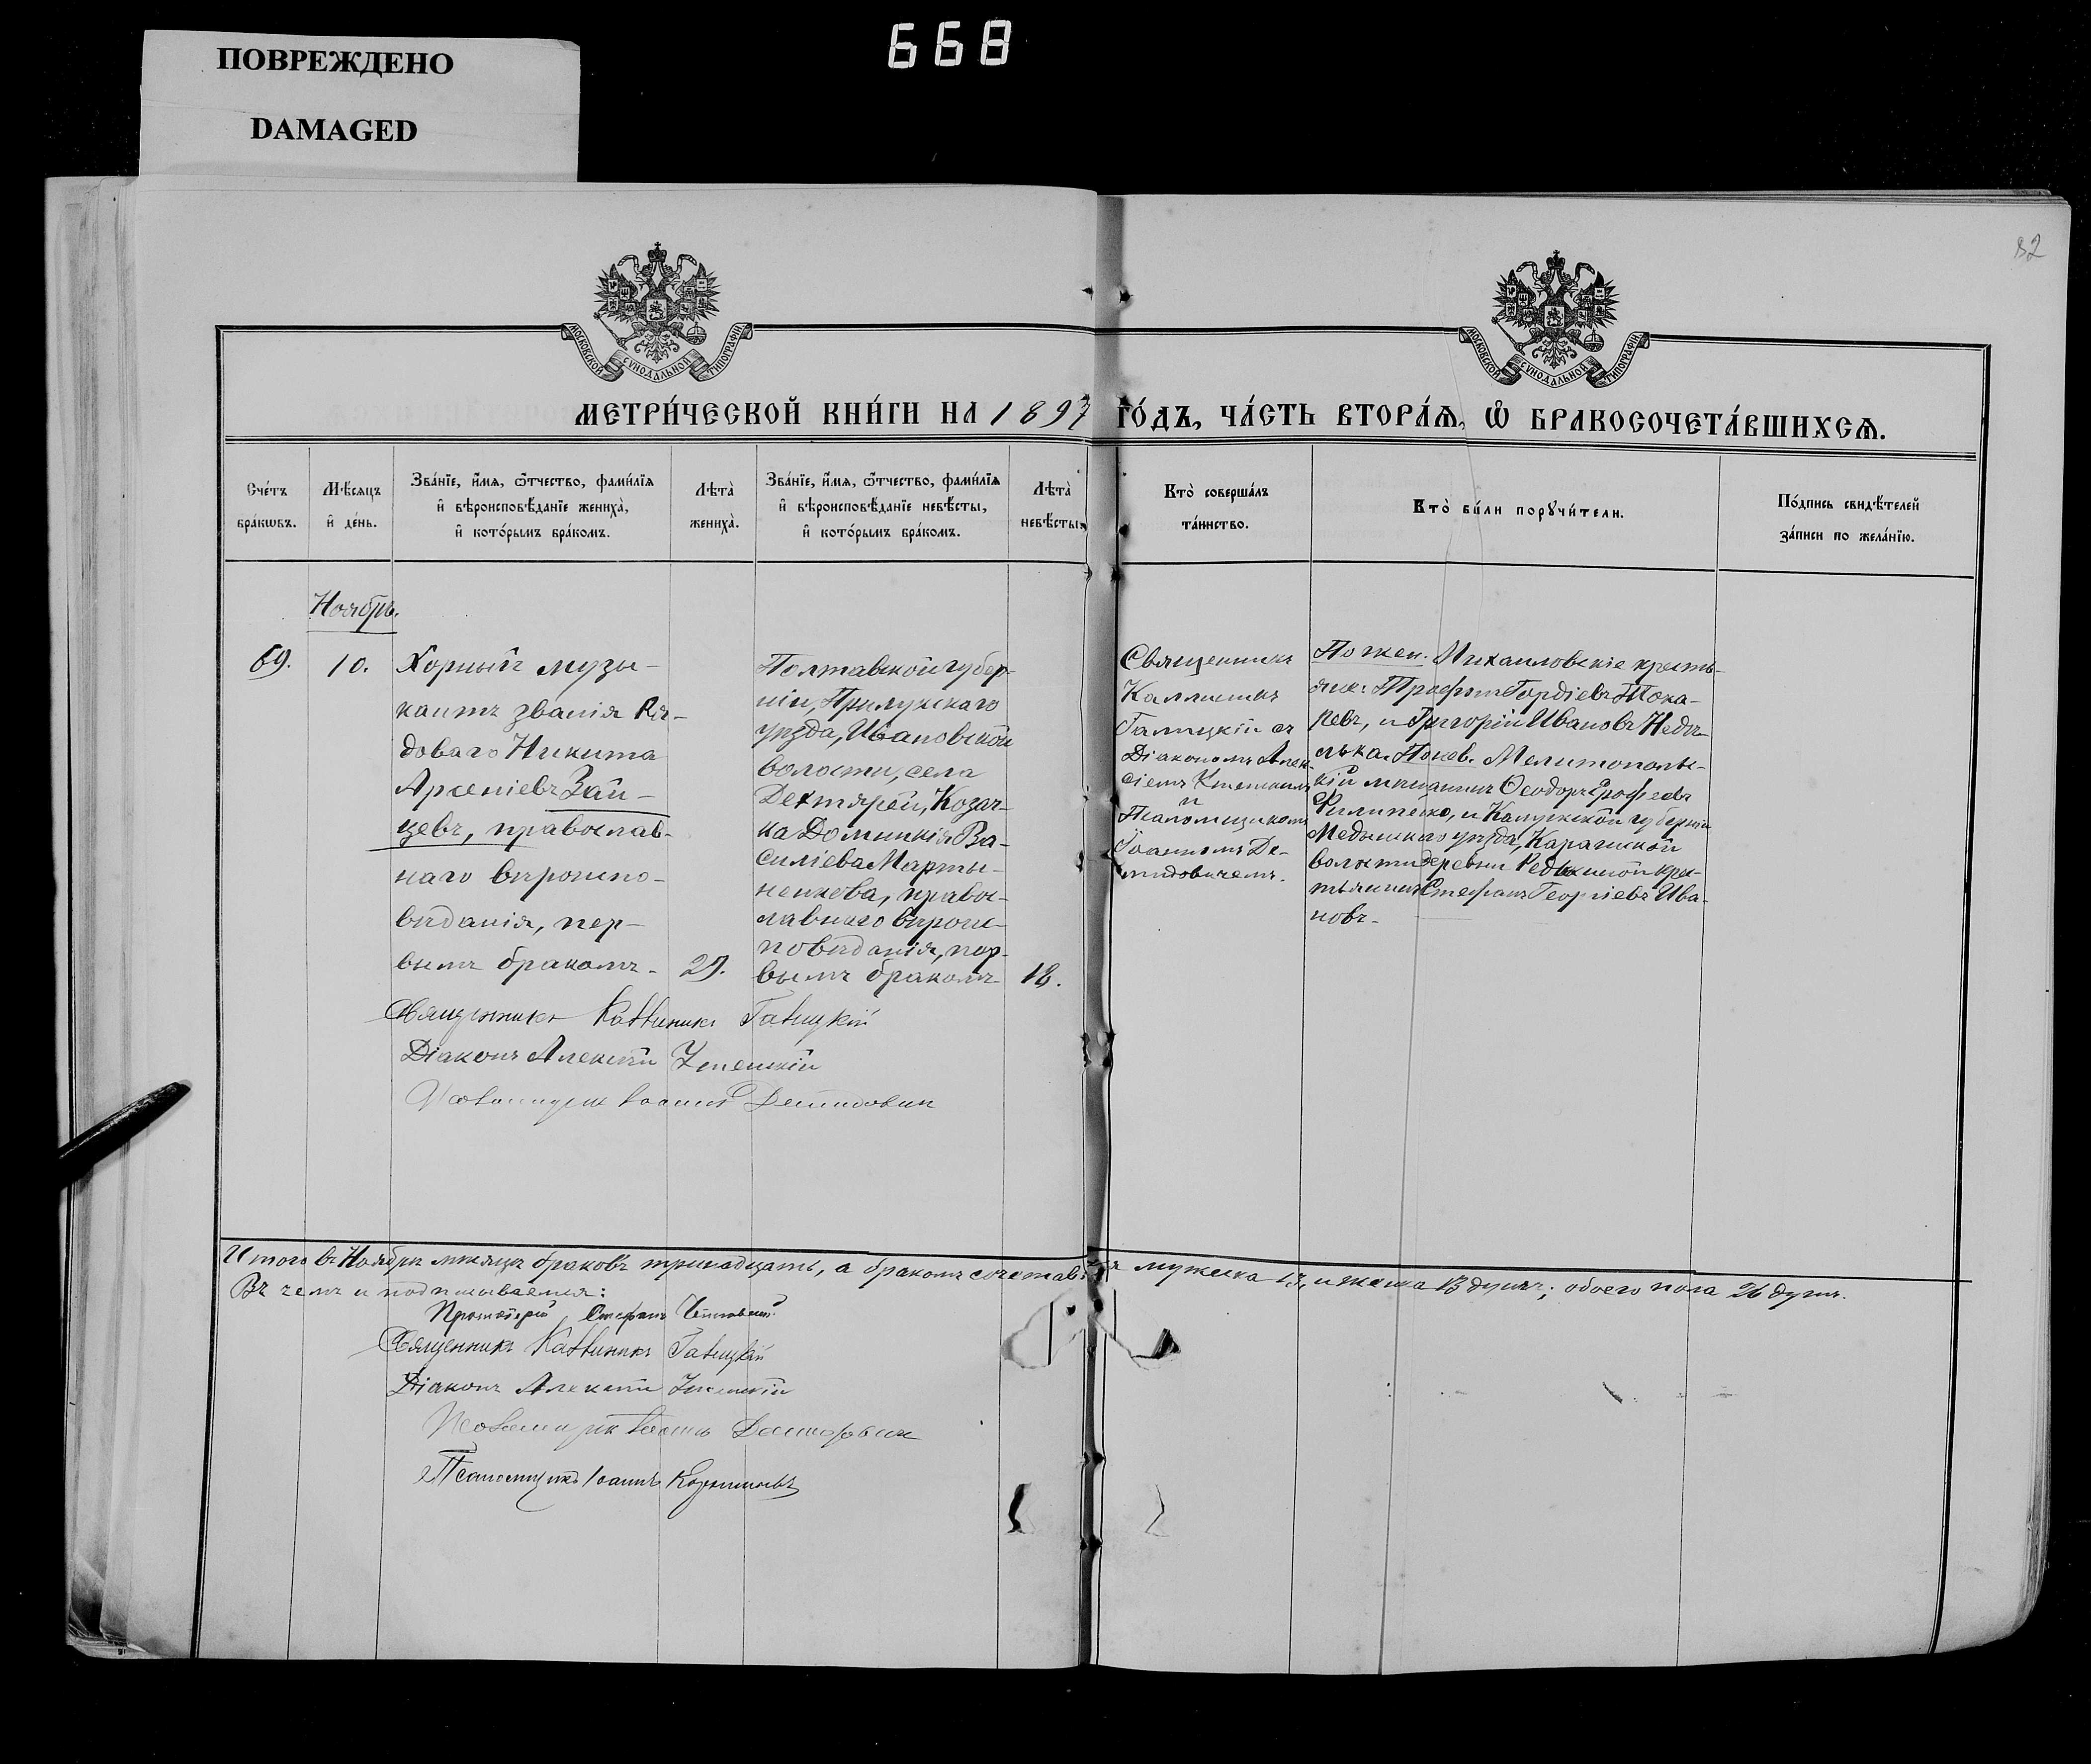 668
ПОВРЕЖДЕНО
DAMAGED
82
МОСКОВСКОЙ СѴНОДАЛЬНОЙ ТИПОГРАФІИ
МОСКОВСКОЙ СѴНОДАЛЬНОЙ ТИПОГРАФІИ
МЕТРИ́ЧЕСКОЙ КНИ́ГИ НА 1897 ГО́ДЪ, ЧА́СТЬ ВТОРА́Ѧ, Ѡ҆ БРАКОСОЧЕТА́ВШИХСѦ.
Сче́тъ
бра́кѡвъ.
Мѣ́сяцъ
и҆ де́нь.
Зва́нїе, и҆́мя, ѻ҆́тчество, фами́лїя
и҆ вѣроисповѣ́данїе жениха̀,
и҆ кото́рымъ бра́комъ.
Лѣта̀
жениха̀.
Зва́нїе, и҆́мя, ѻ҆́тчество, фами́лїя
и҆ вѣроисповѣ́данїе невѣ́сты,
и҆ кото́рымъ бра́комъ.
Лѣта̀
невѣ́сты.
Кто̀ соверша́лъ
та́инство.
Кто̀ бы́ли порꙋчи́тели.
По́дпись свидѣ́телей
за́писи по жела́нїю.
Ноябрь.
69.
10.
Хорный музы-
кантъ званія Ря-
доваго Никита
Арсеніевъ Зай-
цевъ, православ-
наго вѣроиспо-
вѣданія, пер-
вымъ бракомъ.
29.
Полтавской губер-
ніи, Прилукскаго
уѣзда, Ивановской
волости, села
Дехтярей, Козач-
ка Домникія Ва-
силіева Марты-
ненкова, правос-
лавнаго вѣроис-
повѣданія, пер-
вымъ бракомъ
18.
Священникъ
Каллиникъ
Галицкій съ
Діакономъ Алек-
сіемъ
и
Псаломщикомъ
Іоанномъ Де-
мидовичемъ.
По жен. Михаиловскіе кресть-
яне: Трофимъ Гордіевъ Тока-
ревъ, и Григорій Ивановъ Недѣ-
лька. По нев. Мелитопольс-
кій мѣщанинъ Ѳеодоръ Ерофеевъ
Филипенко, и Калужской губерніи
Медынскаго уѣзда, Карамской
волости деревни Редькиной крес-
тьянинъ Стефанъ Георгіевъ Ива-
новъ.
Священникъ Каллиникъ Галицкій
Діаконъ Алексій
Псаломщикъ Іоаннъ Демидовичъ
Итого въ Ноябрѣ мѣсяцѣ браковъ тринадцать, а бракомъ сочетав. мужеска 13, и женска 13 душъ; обоего пола 26 душъ.
Въ чемъ и подписываемся:
Протоіерей Стефанъ
Священникъ Каллиникъ Галицкій
Діаконъ Алексій
Псаломщикъ Іоаннъ Демидовичъ
Псаломщикъ Іоаннъ